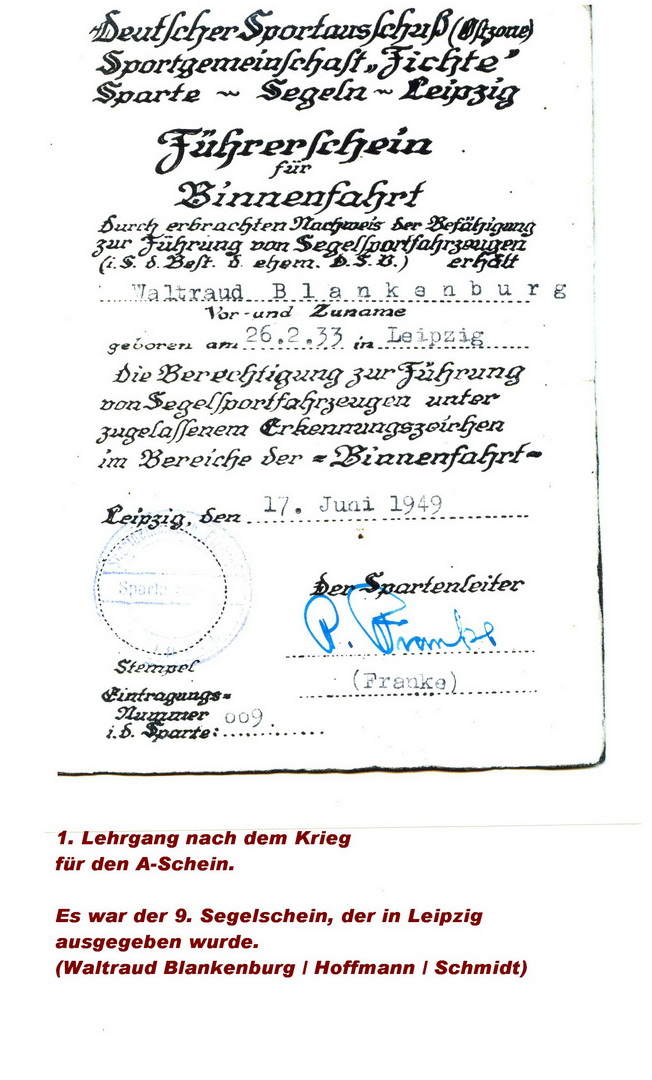 Deutscher Sportausschuß (Ostzone)
Sportgemeinschaft „Fichte"
Sparte ~ Segeln ~ Leipzig
Führerschein
für
Binnenfahrt
Durch erbrachten Nachweis der Befähigung
zur Führung von Segelsportfahrzeugen
(i. S. d. Best. d. ehem. D. S. V.) erhält
Waltraud Blankenburg
Vor- und Zuname
geboren am 26.2.33 in Leipzig
Die Berechtigung zur Führung
von Segelsportfahrzeugen unter
zugelassenem Erkennungszeichen
im Bereiche der = Binnenfahrt =
Leipzig, den 17. Juni 1949
Spart
Der Spartenleiter
P. Franke
(Franke)
Stempel
Eintragungs=
Nummer 009.
i. d. Sparte:
1. Lehrgang nach dem Krieg
für den A-Schein.
Es war der 9. Segelschein, der in Leipzig
ausgegeben wurde.
(Waltraud Blankenburg / Hoffmann / Schmidt)